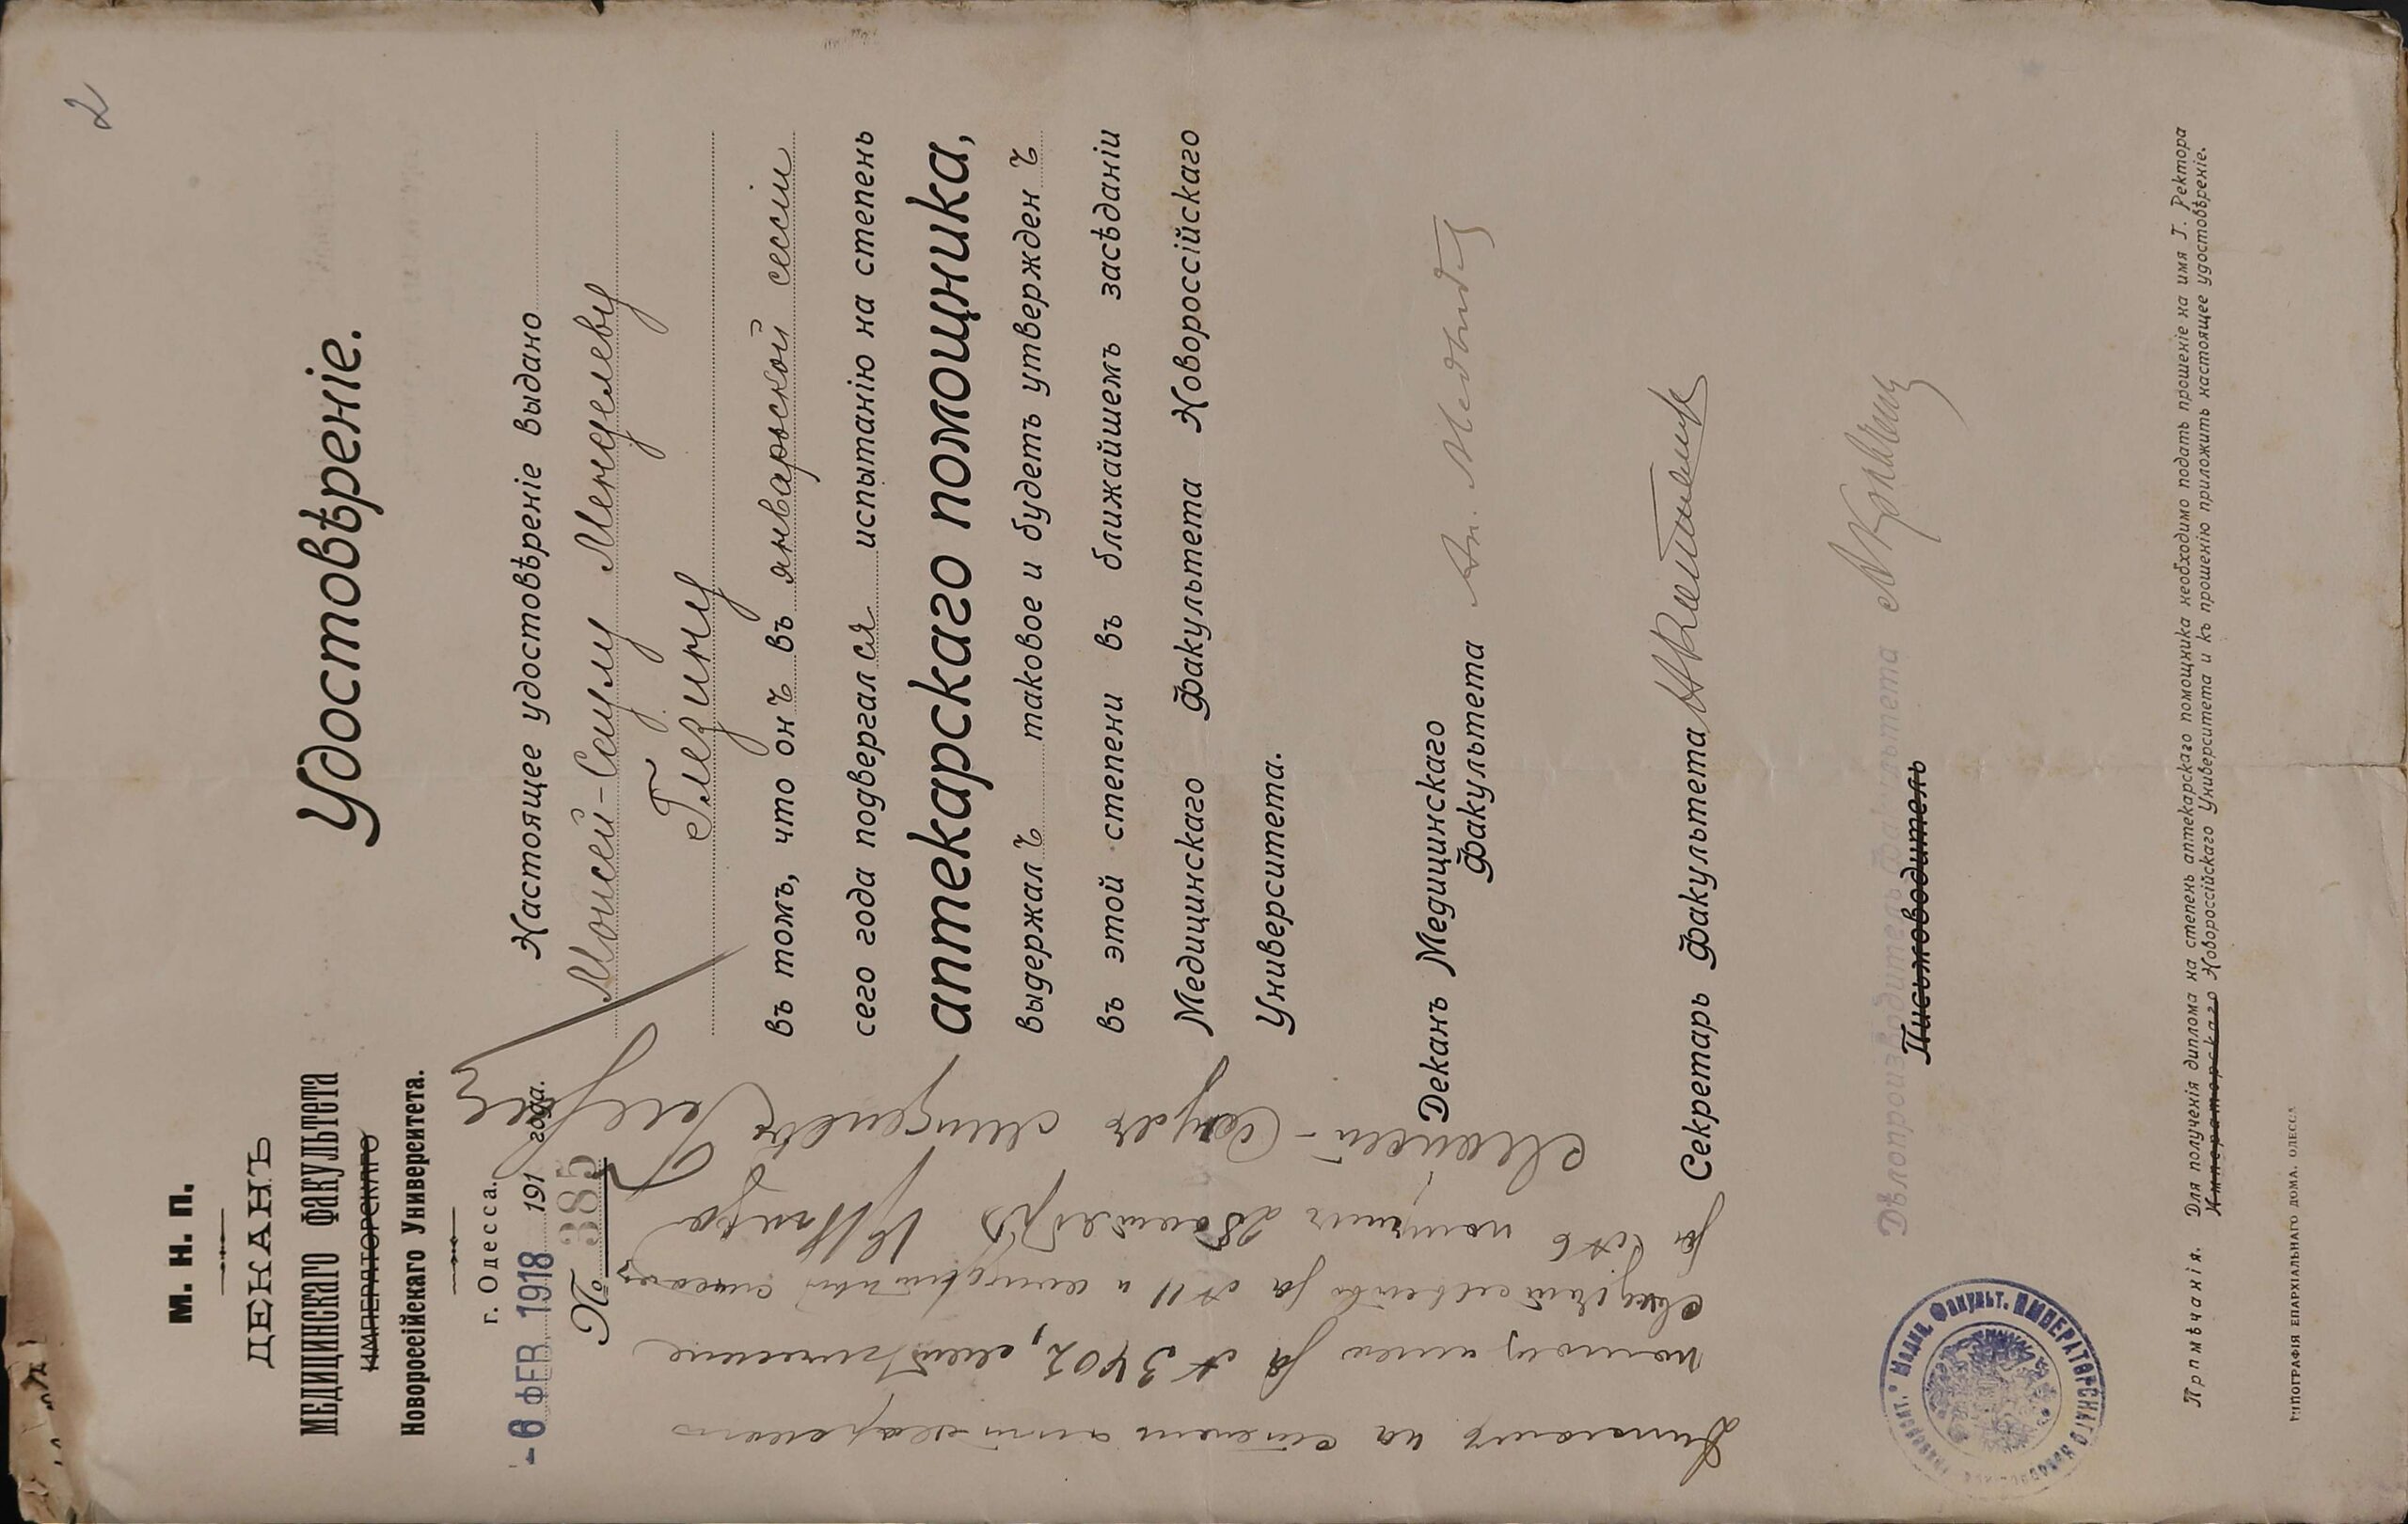 2
М. Н. П.
ДЕКАНЪ
МЕДИЦИНСКАГО ФАКУЛЬТЕТА
ИМПЕРАТОРСКАГО
Новороссійскаго Университета.
г. Одесса.
- 6 ФЕВ. 1918 191 года.
№ 385
Удостовѣреніе.
Настоящее удостовѣреніе выдано
Моисей-Саулу Менделеву
Глезину
въ томъ, что онъ въ январской сессіи
сего года подвергался испытанію на степень
аптекарскаго помощника,
выдержалъ таковое и будетъ утвержденъ
въ этой степени въ ближайшемъ засѣданіи
Медицинскаго Факультета Новороссійскаго
Университета.
Деканъ Медицинскаго
Факультета
Секретарь Факультета
Дѣлопроизводитель Факультета
Письмоводитель
Дипломъ на степень аптекарскаго
помощника за № 3402, метрическое
свидѣтельство за № 11 и
за № 6 получилъ
Моисей-Саулъ Менделевъ Глезинъ
Медиц. Факульт. ИМПЕРАТОРСКАГО
Примѣчанія. Для полученія диплома на степень аптекарскаго помощника необходимо подать прошеніе на имя Г. Ректора
Императорскаго Новороссійскаго Университета и къ прошенію приложить настоящее удостовѣреніе.
ТИПОГРАФІЯ ЕПАРХІАЛЬНАГО ДОМА. ОДЕССА